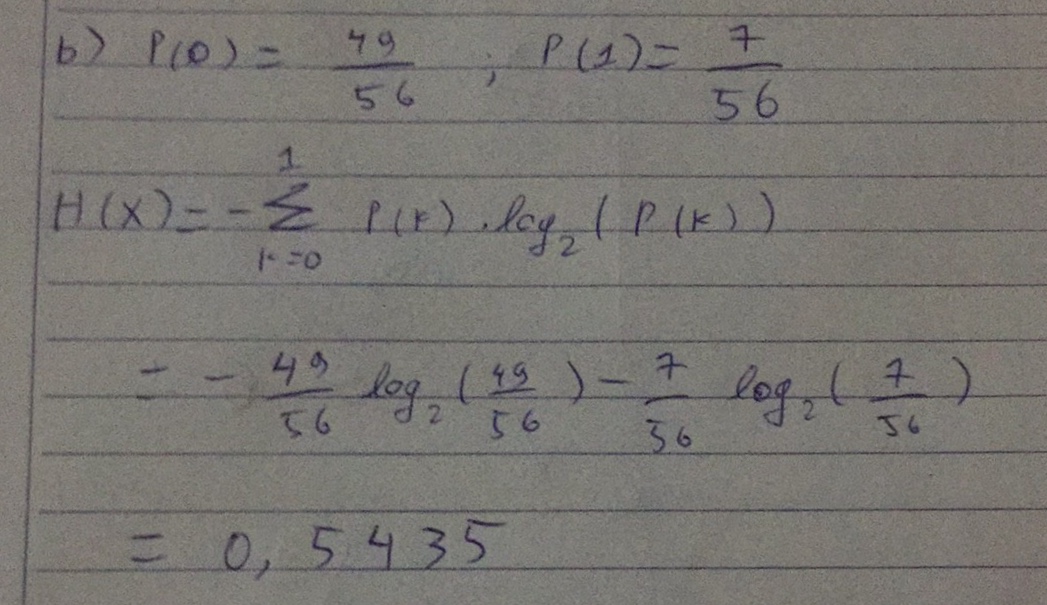 b) P(0) = 49/56 ; P(1) = 7/56
H(X) = - ∑_{k=0}^{1} P(k) . log₂ ( P(k) )
= - 49/56 log₂ ( 49/56 ) - 7/56 log₂ ( 7/56 )
= 0,5435